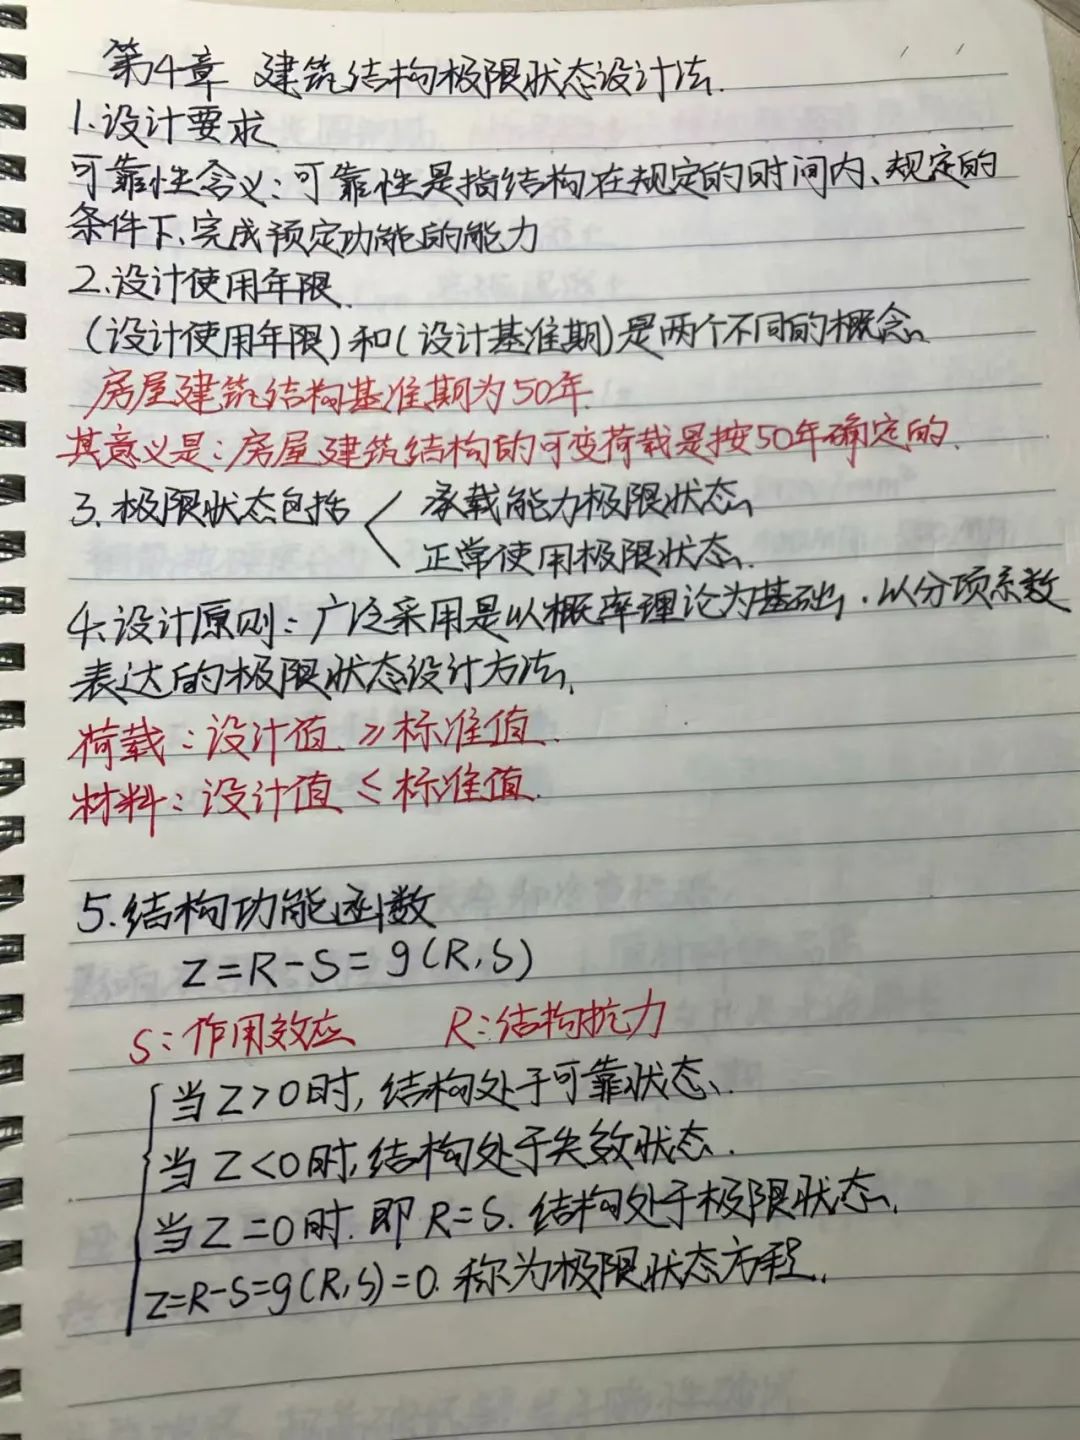 第4章 建筑结构极限状态设计法.
1.设计要求
可靠性含义:可靠性是指结构在规定的时间内、规定的
条件下、完成预定功能的能力
2.设计使用年限.
(设计使用年限)和(设计基准期)是两个不同的概念、
房屋建筑结构基准期为50年.
其意义是:房屋建筑结构的可变荷载是按50年确定的.
3.极限状态包括 < 承载能力极限状态、
正常使用极限状态.
4.设计原则:广泛采用是以概率理论为基础,.以分项系数
表达的极限状态设计方法.
荷载:设计值 ≥ 标准值.
材料:设计值 ≤ 标准值.
5.结构功能函数
Z=R-S=g(R,S)
S:作用效应 R:结构抗力
当Z>0时,结构处于可靠状态、
当Z<0时,结构处于失效状态.
当Z=0时.即R=S.结构处于极限状态、
Z=R-S=g(R,S)=0.称为极限状态方程.